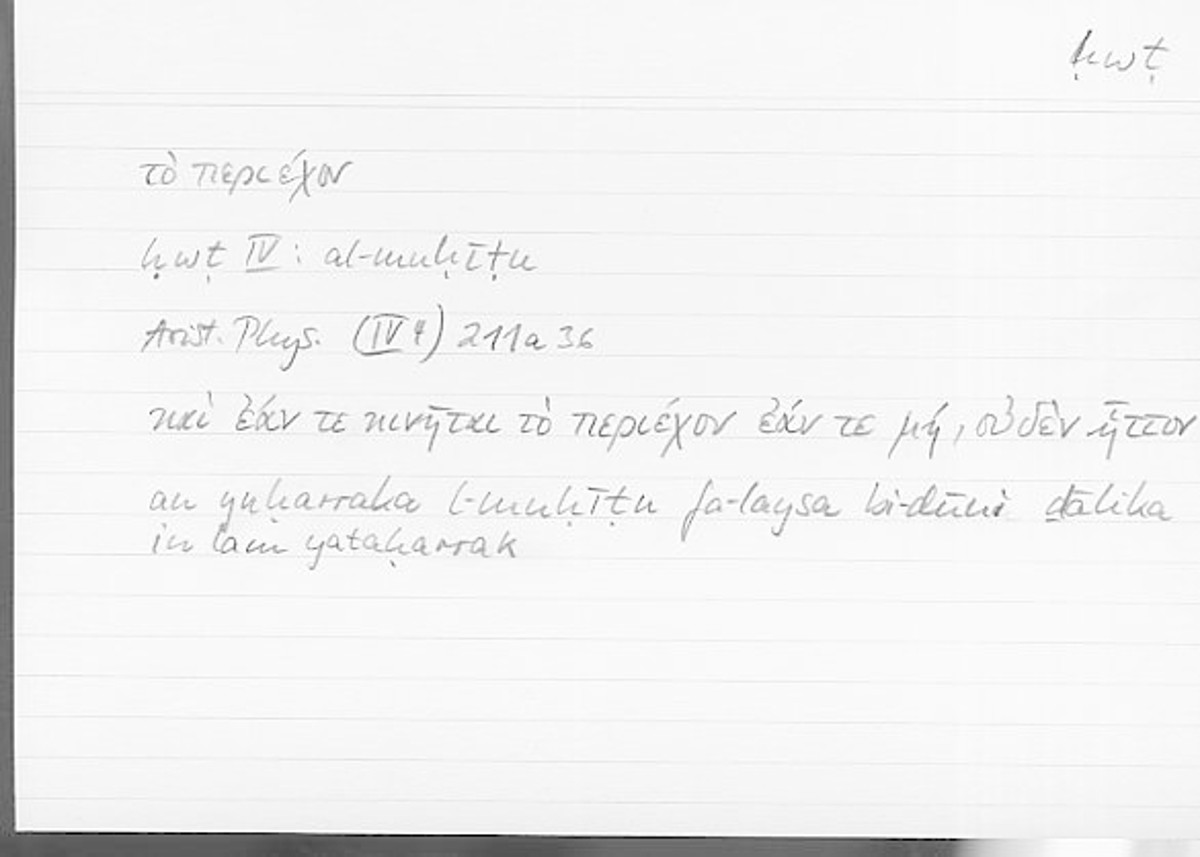 ḥwṭ
τὸ περιέχον
ḥwṭ IV: al-muḥīṭu
Arist. Phys. (IV 4) 211a 36
καὶ ἐάν τε κινῆται τὸ περιέχον ἐάν τε μή, οὐδὲν ἧττον
an yuḥarraka l-muḥīṭu fa-laysa bi-dūni ḏālika
in lam yataḥarrak